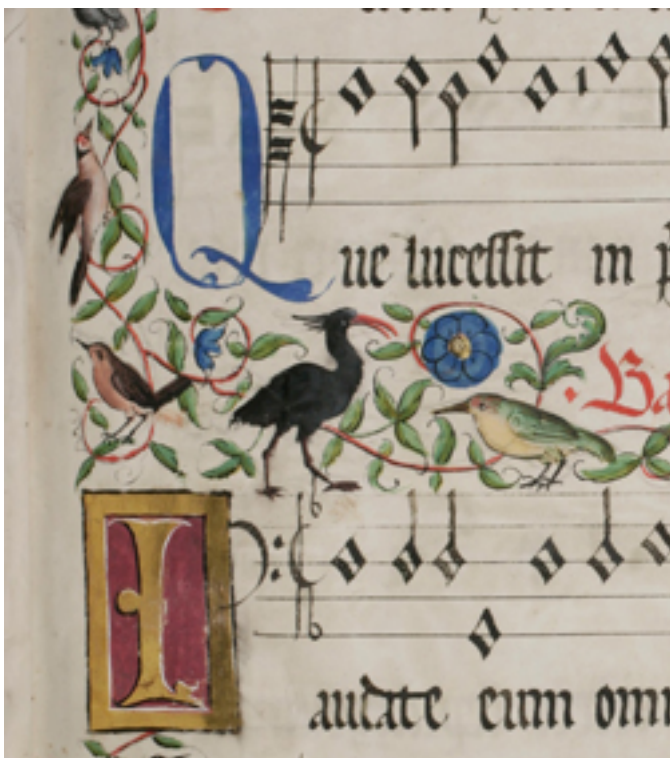 Que lucessit in
Ba
Laudate eum omni